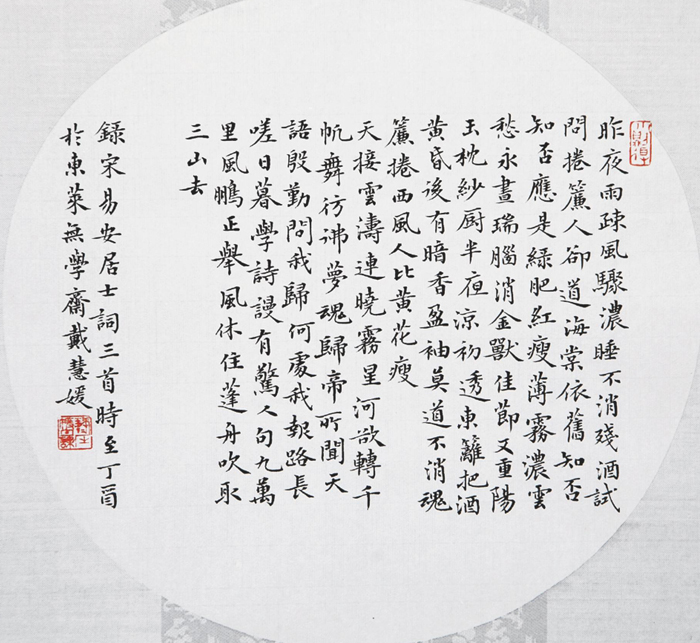 昨夜雨疎風驟濃睡不消殘酒試
問捲簾人卻道海棠依舊知否
知否應是綠肥紅瘦薄霧濃雲
愁永晝瑞腦消金獸佳節又重陽
玉枕紗厨半夜涼初透東籬把酒
黃昏後有暗香盈袖莫道不消魂
簾捲西風人比黃花瘦
天接雲濤連曉霧星河欲轉千
帆舞彷彿夢魂歸帝所聞天
語殷勤問我歸何處我報路長
嗟日暮學詩謾有驚人句九萬
里風鵬正舉風休住蓬舟吹取
三山去
錄宋易安居士詞三首時至丁酉
於東萊無學齋戴慧媛